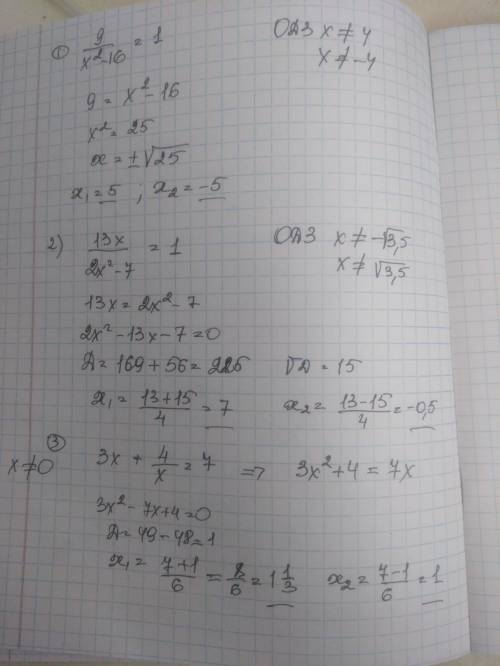 ① 9/(x²-16) = 1 ОДЗ x ≠ 4
x ≠ -4
9 = x² - 16
x² = 25
x = ±√25
x₁ = 5 ; x₂ = -5
2) 13x/(2x²-7) = 1 ОДЗ x ≠ -√3,5
x ≠ √3,5
13x = 2x² - 7
2x² - 13x - 7 = 0
Д = 169 + 56 = 225 √Д = 15
x₁ = (13+15)/4 = 7 x₂ = (13-15)/4 = -0,5
③
x ≠ 0 3x + 4/x = 7 => 3x² + 4 = 7x
3x² - 7x + 4 = 0
Д = 49 - 48 = 1
x₁ = (7+1)/6 = 8/6 = 1 1/3 x₂ = (7-1)/6 = 1